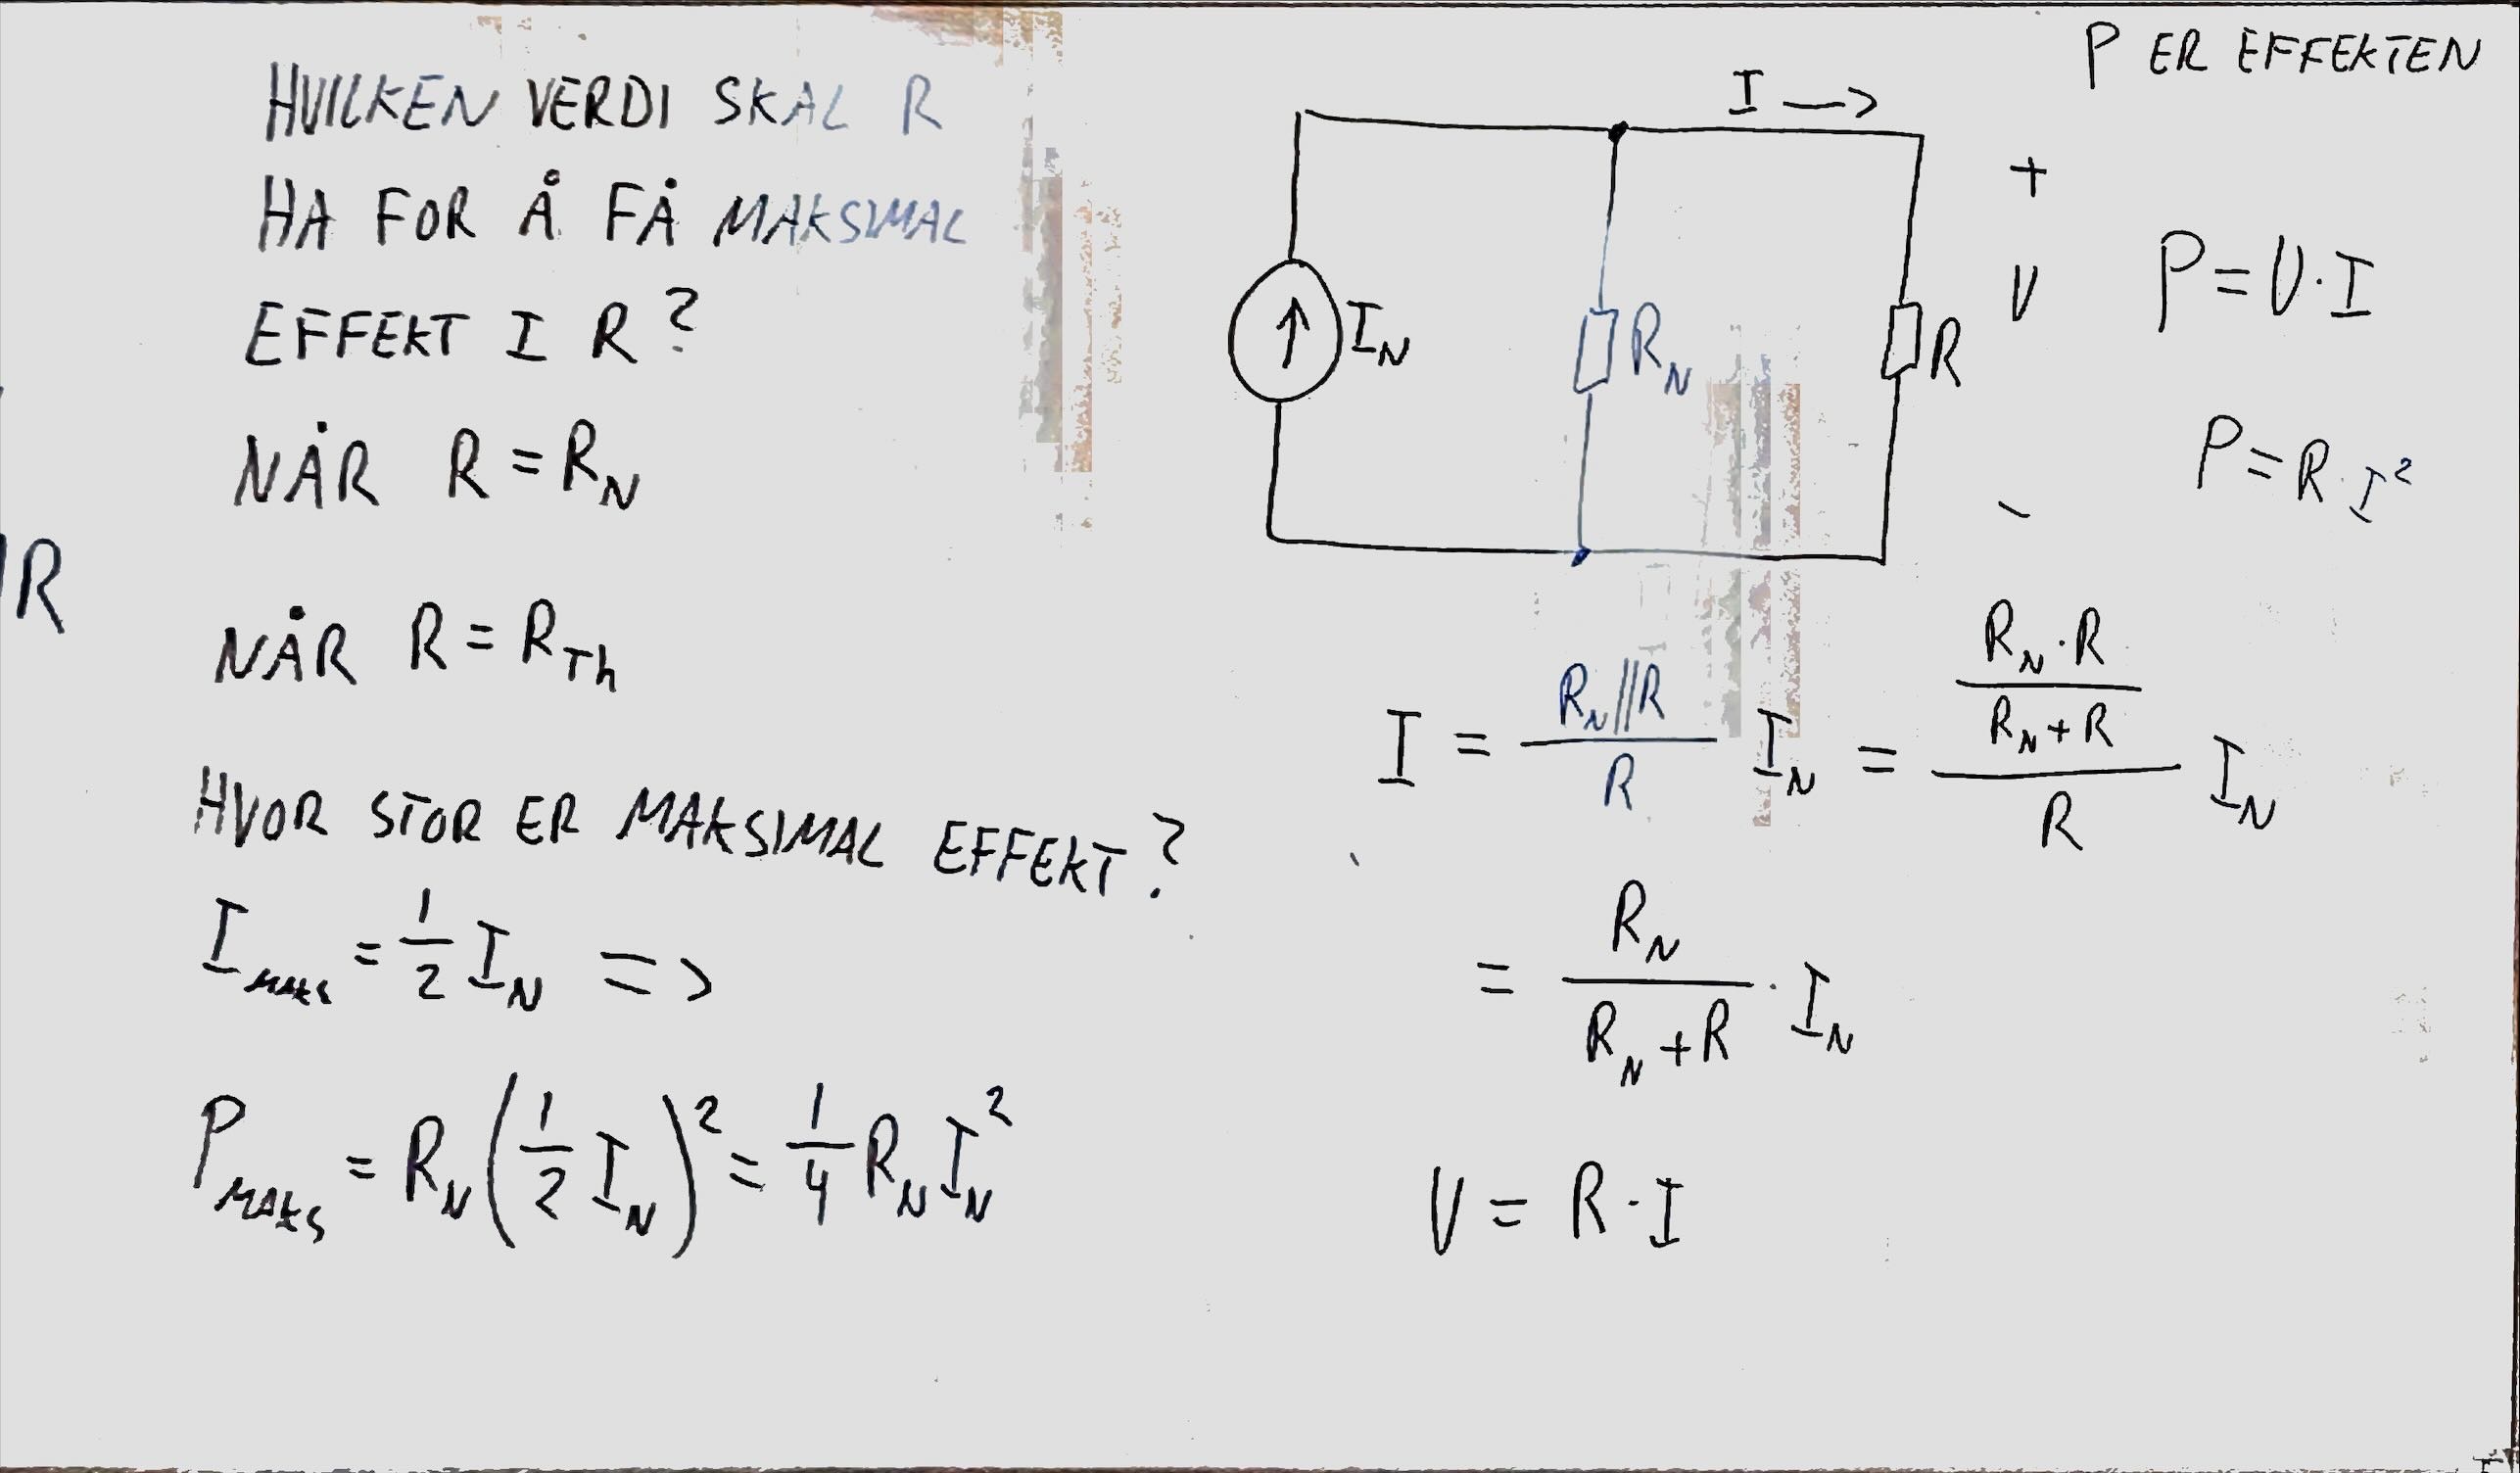 HVILKEN VERDI SKAL R
HA FOR Å FÅ MAKSIMAL
EFFEKT I R?
NÅR R = R_N
NÅR R = R_Th
HVOR STOR ER MAKSIMAL EFFEKT?
I_MAKS = 1/2 I_N =>
P_MAKS = R_N (1/2 I_N)² = 1/4 R_N I_N²
IR
P ER EFFEKTEN
I →
+
V
-
P = V · I
P = R · I²
↑
I_N
R_N
R
I = (R_N//R)/R I_N = ((R_N · R)/(R_N + R))/R I_N
= R_N/(R_N + R) · I_N
V = R · I